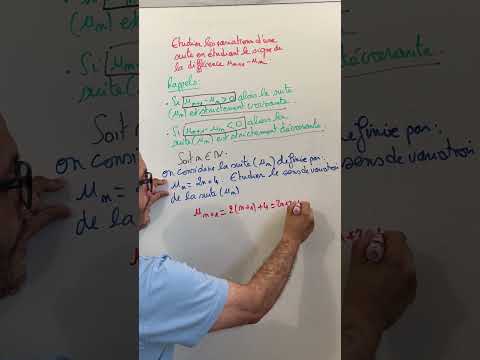 Etudier les variations d'une
suite en étudiant le signe de
la différence uₙ₊₁-uₙ
Rappels:
• Si uₙ₊₁-uₙ>0 alors la suite
(uₙ) est strictement croissante.
• Si uₙ₊₁-uₙ<0 alors la
suite (uₙ) est strictement décroissante.
Soit n ∈ IN.
on considère la suite (uₙ) définie par:
uₙ = 2n+4. Etudier le sens de variation
de la suite (uₙ)
uₙ₊₁ = 2(n+1)+4 = 2n+2